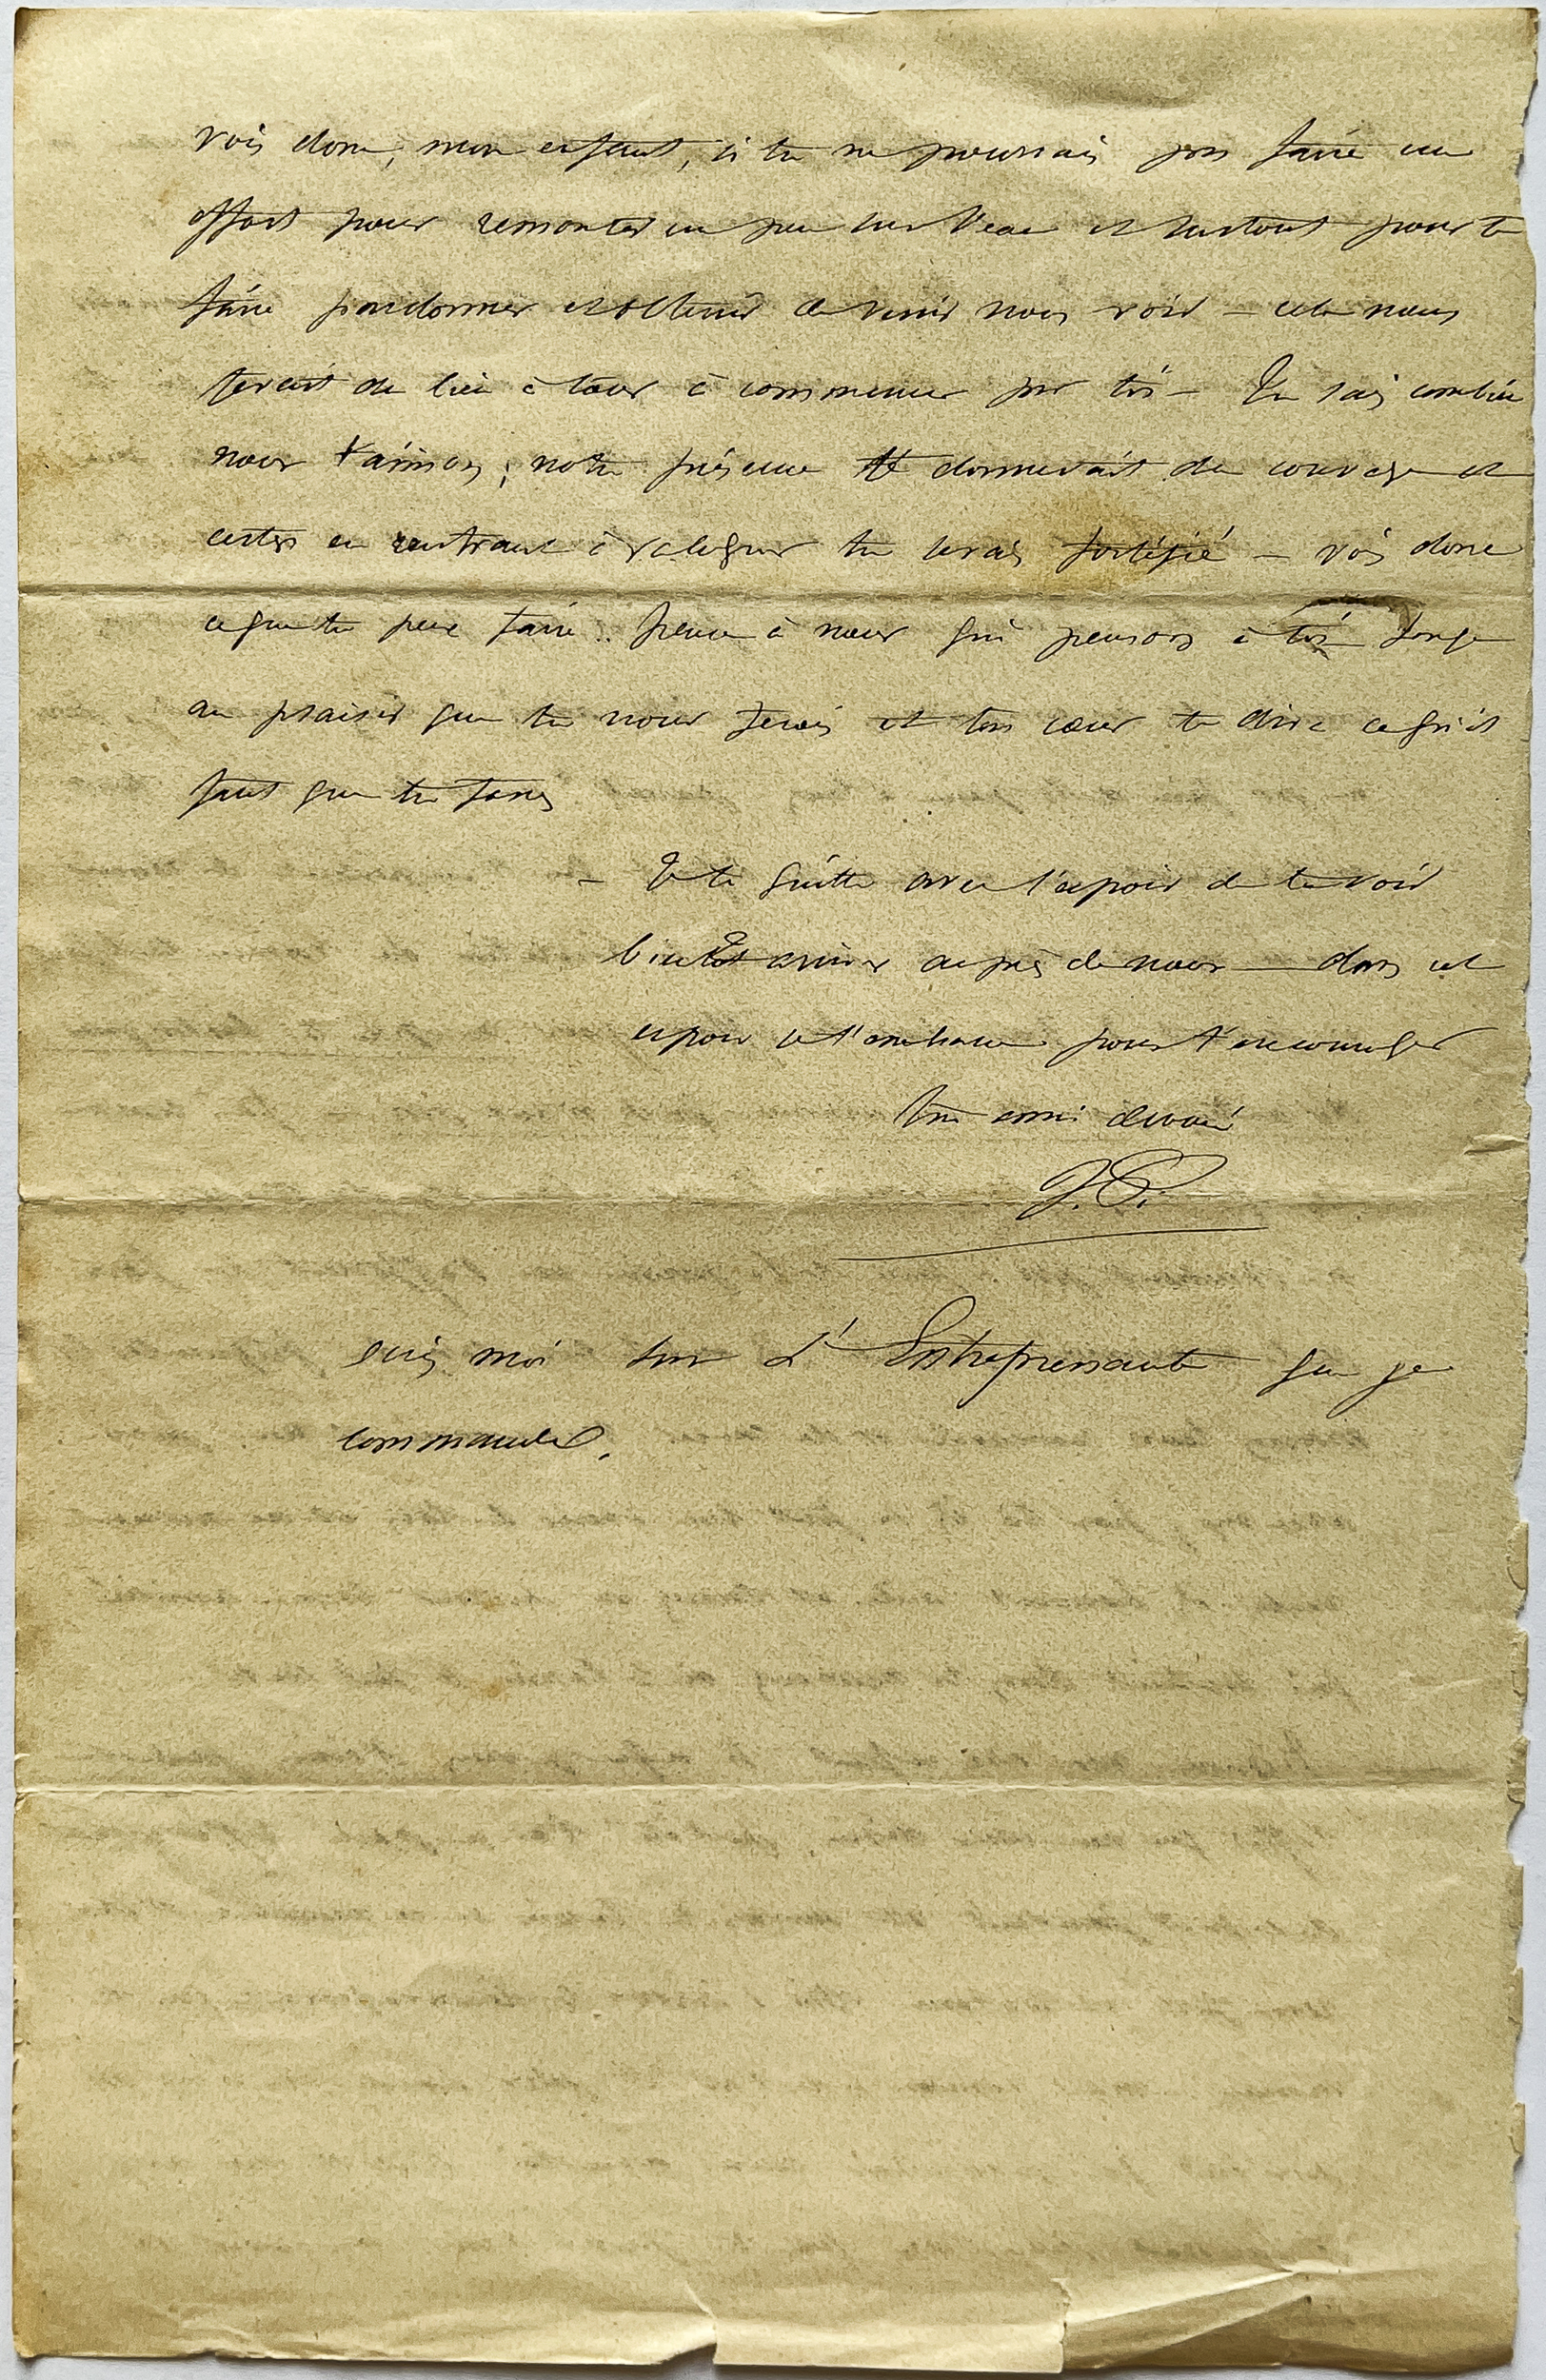 vois donc, mon enfant, si tu ne pourrais pas faire un
effort pour remonter un peu sur l'eau et surtout pour te
faire pardonner et obtenir de venir nous voir — cela nous
ferait du bien à tous à commencer par toi — Tu sais combien
nous t'aimons, notre présence te donnerait du courage et
certes en rentrant à tu serais fortifié — vois donc
ce que tu peux faire. pense à nous qui pensons à toi songe
au plaisir que tu nous ferais et ton cœur te dira ce qu'il
faut que tu fasses
— Je te quitte avec l'espoir de te voir
bientôt arriver auprès de nous — dans cet
espoir je t'embrasse pour t'encourager
ton ami dévoué
J. P.
écris moi sur L'Entreprenante que je
commande.